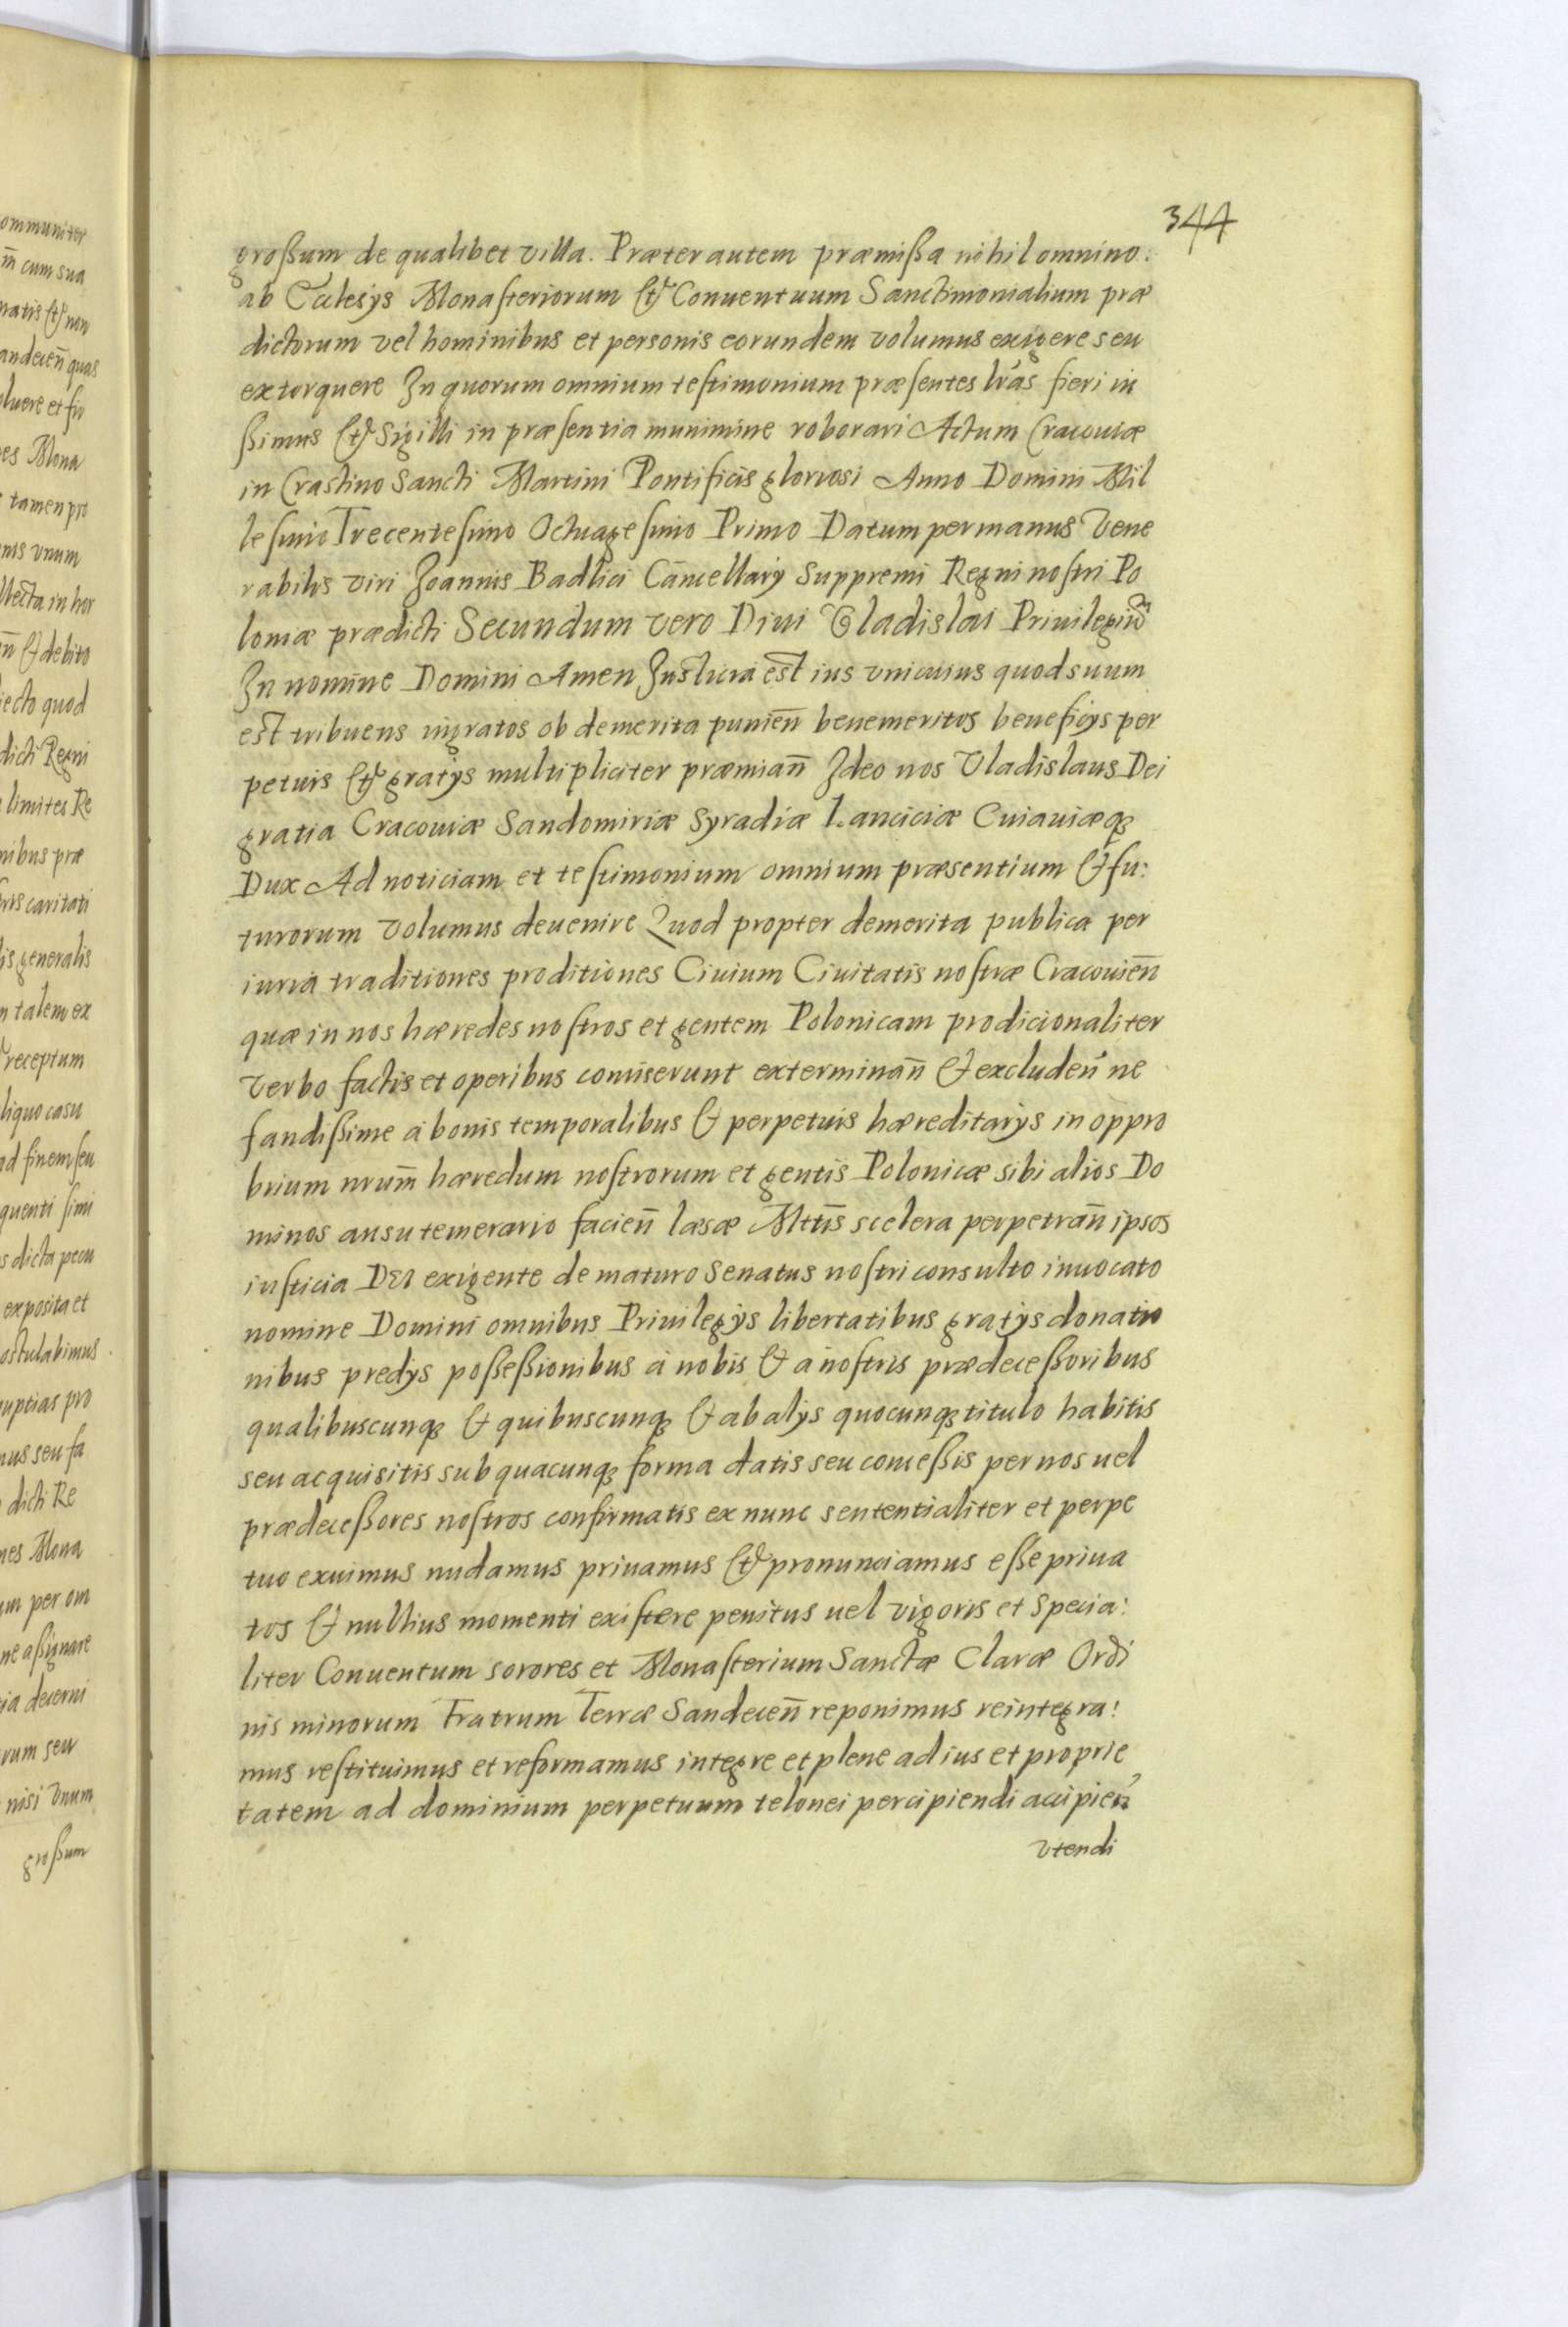 344
großum de qualibet villa. Præter autem præmißa nihil omnino:
ab Ecclesys Monasteriorum Et Conuentuum Sanctimonialium præ
dictorum vel hominibus et personis eorundem volumus exigere seu
extorquere In quorum omnium testimonium præsentes lr̃as fieri iu
ßimus Et Sigilli in præsentia munimine roborari Actum Cracouiæ
in Crastino Sancti Martini Pontificis gloriosi Anno Domini Mil
lesimo Trecentesimo Octuagesimo Primo Datum per manus Vene
rabilis viri Joannis Badlici Cancellary Suppremi Regni nostri Po
loniæ prædicti Secundum vero Diui Vladislai Priuilegiũ
In nomine Domini Amen Justicia est ius vnicuius quod suum
est tribuens ingratos ob demerita punieñ benemeritos beneficys per
petuis Et gratys multipliciter præmiañ Ideo nos Vladislaus Dei
gratia Cracouiæ Sandomiriæ Syradiæ Lanciciæ Cuiauiæq3
Dux Ad noticiam et testimonium omnium præsentium & fu:
turorum volumus deuenire Quod propter demerita publica per
iuria traditiones proditiones Ciuium Ciuitatis nostræ Cracouieñ
quæ in nos hæredes nostros et gentem Polonicam prodicionaliter
verbo factis et operibus comiserunt exterminañ & excludeñ ne
fandißime a bonis temporalibus & perpetuis hæreditarys in oppro
brium nrum̃ hæredum nostrorum et gentis Polonicæ sibi alios Do
minos ausu temerario facieñ læsæ Mttis scelera perpetrañ ipsos
iusticia DEI exigente de maturo Senatus nostri consulto inuocato
nomine Domini omnibus Priuilegys libertatibus gratys donatio
nibus predys poßeßionibus a nobis & a nostris prædeceßoribus
qualibuscunq3 & quibuscunq3 & ab alys quocunq3 titulo habitis
seu acquisitis sub quacunq3 forma datis seu conceßis per nos uel
prædeceßores nostros confirmatis ex nunc sententialiter et perpe
tuo exuimus nudamus priuamus Et pronunciamus eße priua
tos & nullius momenti existere penitus uel vigoris et specia:
liter Conuentum sorores et Monasterium Sanctæ Claræ Ordi
nis minorum Fratrum Terræ Sandeceñ reponimus reintegra:
mus restituimus et reformamus integre et plene ad ius et proprie
tatem ad dominium perpetuum telonei percipiendi accipieñ
vtendi